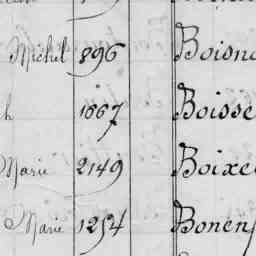 Michel 896 Boisn
h 1667 Boisse
Marie 2149 Boixe
Marie 1254 Bonen